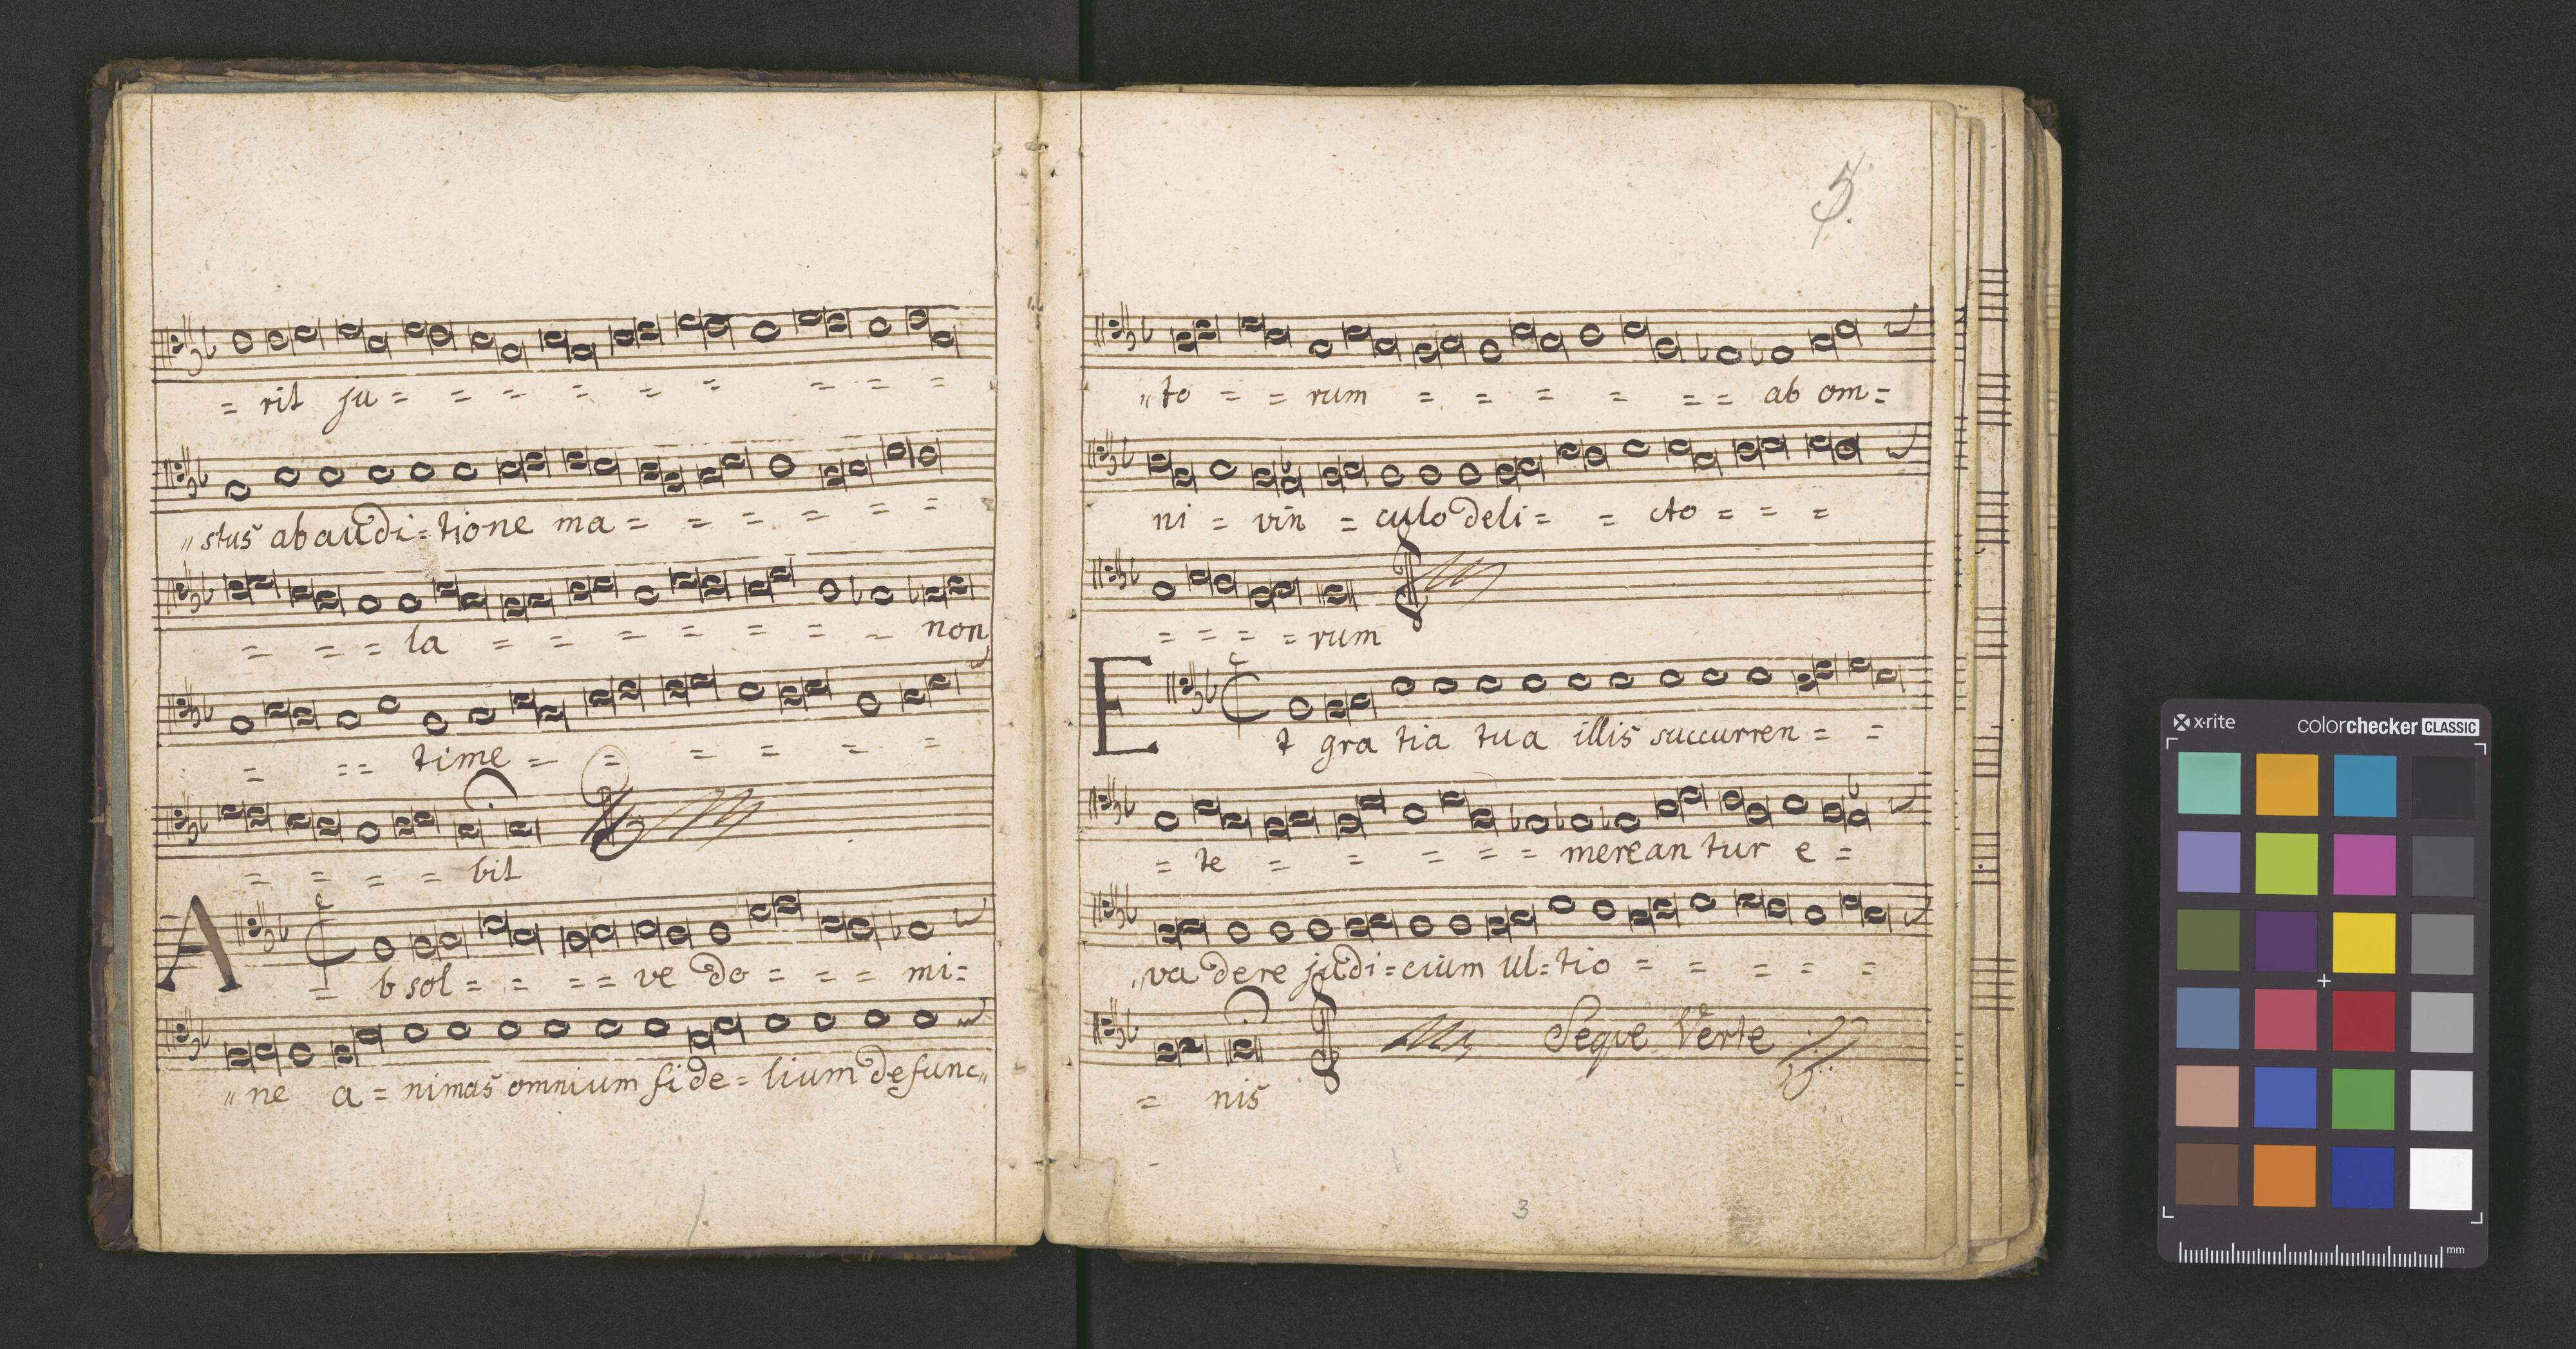 = rit ju = = = = = = = = =
„ stus ab audi = tione ma = = = = = =
= = = la = = = = = = = non
= = = time = = = = = =
= = = = bit
A = b sol = = = = ve do = = = mi =
„ ne a = nimas omnium fide = lium defunc „
5.
„ to = = rum = = = = = = ab om =
ni = vin = culo deli = = cto = = =
= = = = rum
Et gra tia tua illis succurren = =
= te = = = = = merean tur e =
„ va dere judi = cium ul = tio = = = = =
Seque Verte
= nis
3
x·rite colorchecker CLASSIC
mm